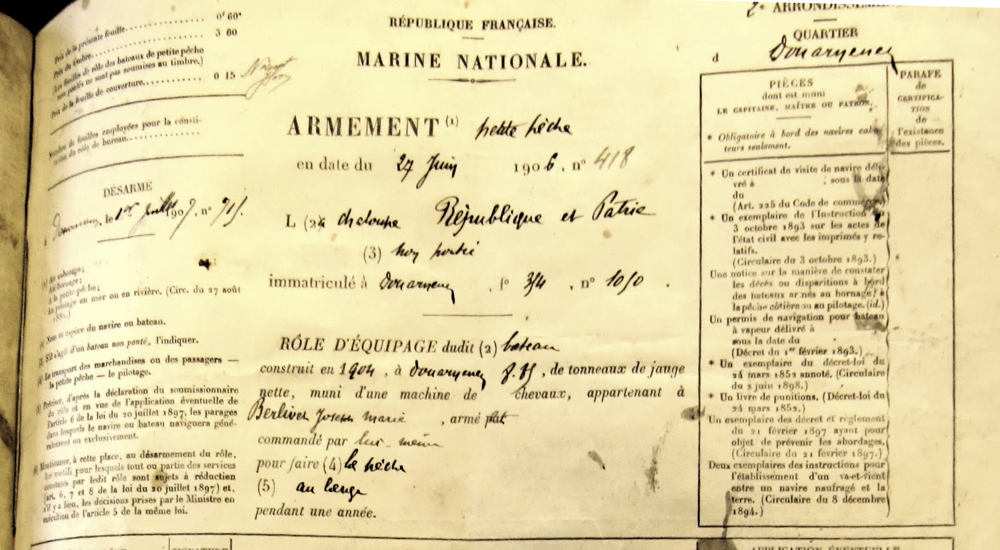 Prix de la présente feuille
0f 60c
Prix du timbre
3 60
(Les feuilles de rôle des bateaux de petite pêche
non pontés ne sont pas soumises au timbre.)
Prix de la feuille de couverture
0 15
Nombre de feuilles employées pour la consti-
tution du rôle de bureau
DÉSARMÉ
le 1er Juillet 1907, n°
(1) Au cabotage;
Au bornage;
A la petite pêche;
Au pilotage en mer ou en rivière. (Circ. du 27 août
(2) Nom et espèce du navire ou bateau.
(3) S'il s'agit d'un bateau non ponté, l'indiquer.
(4) Le transport des marchandises ou des passagers —
la petite pêche — le pilotage.
(5) Préciser, d'après la déclaration du soumissionnaire
du rôle et en vue de l'application éventuelle de
l'article 6 de la loi du 20 juillet 1897, les parages
dans lesquels le navire ou bateau naviguera géné-
ralement ou exclusivement.
(6) Mentionner, à cette place, au désarmement du rôle,
les motifs pour lesquels tout ou partie des services
constatés par ledit rôle sont sujets à réduction
(art. 6, 7 et 8 de la loi du 20 juillet 1897) et,
s'il y a lieu, les décisions prises par le Ministre en
exécution de l'article 5 de la même loi.
RÉPUBLIQUE FRANÇAISE.
MARINE NATIONALE.
ARMEMENT (1) petite pêche
en date du 27 Juin 1906, n° 418
L (2) chaloupe République et Patrie
(3) non ponté
immatriculé à Douarnenez, f° 3/4, n° 1010.
RÔLE D'ÉQUIPAGE dudit (2) bateau
construit en 1904, à Douarnenez, de tonneaux de jauge
nette, muni d'une machine de chevaux, appartenant à
Berlivet Joseph Marie, armé
commandé par lui-même
pour faire (4) la pêche
(5) au large
pendant une année.
2e ARRONDISSEMENT
QUARTIER
d Douarnenez
PIÈCES
dont est muni
LE CAPITAINE, MAÎTRE OU PATRON.
* Obligatoire à bord des navires cabo-
teurs seulement.
PARAFE
de
CERTIFICA-
TION
de
l'existence
des pièces.
* Un certificat de visite de navire déli-
vré à , sous la date
du
(Art. 225 du Code de commerce.)
* Un exemplaire de l'Instruction du
3 octobre 1893 sur les actes de
l'état civil avec les imprimés y re-
latifs.
(Circulaire du 3 octobre 1893.)
Une notice sur la manière de constater
les décès ou disparitions à bord
des bateaux armés au bornage, à
la pêche côtière ou au pilotage. (id.)
Un permis de navigation pour bateau
à vapeur délivré à
sous la date du
(Décret du 1er février 1893.)
* Un exemplaire du décret-loi du
24 mars 1852 annoté. (Circulaire
du 2 juin 1898.)
* Un livre de punitions. (Décret-loi du
24 mars 1852.)
Un exemplaire des décret et règlement
du 21 février 1897 ayant pour
objet de prévenir les abordages.
(Circulaire du 21 février 1897.)
Deux exemplaires des instructions pour
l'établissement d'un va-et-vient
entre un navire naufragé et la
terre. (Circulaire du 8 décembre
1894.)
SIGNATURE
APPLICATION ÉVENTUELLE